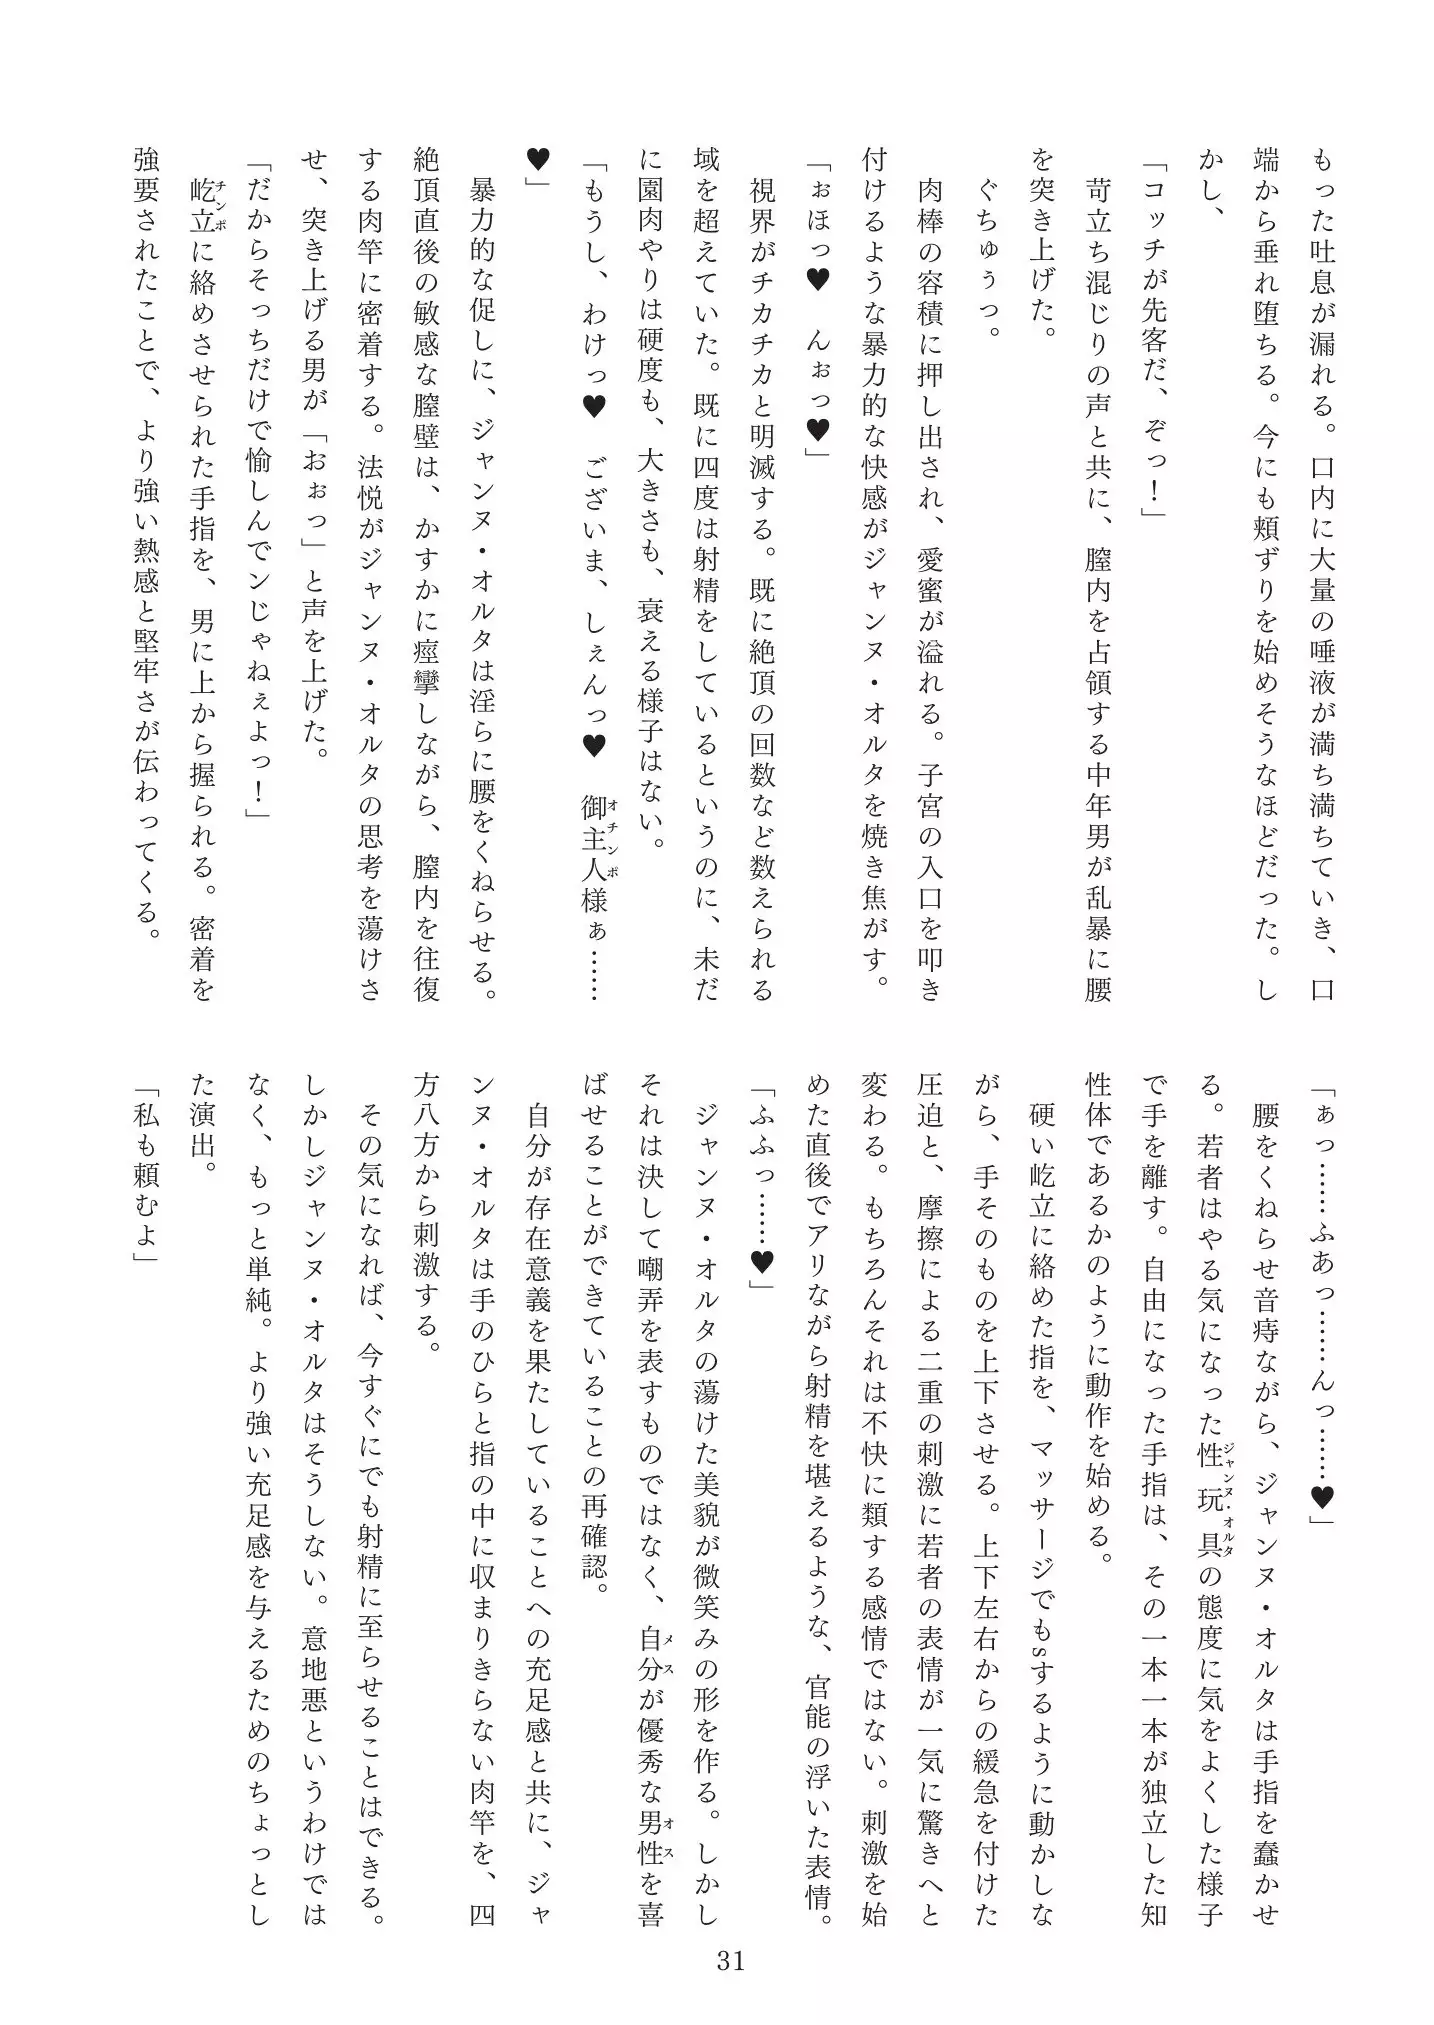 もった吐息が漏れる。口内に大量の唾液が満ち満ちていき、口
端から垂れ堕ちる。今にも頬ずりを始めそうなほどだった。し
かし、
「コッチが先客だ、ぞっ！」
苛立ち混じりの声と共に、膣内を占領する中年男が乱暴に腰
を突き上げた。
ぐちゅぅっ。
肉棒の容積に押し出され、愛蜜が溢れる。子宮の入口を叩き
付けるような暴力的な快感がジャンヌ・オルタを焼き焦がす。
「ぉほっ♥　んぉっ♥」
視界がチカチカと明滅する。既に絶頂の回数など数えられる
域を超えていた。既に四度は射精をしているというのに、未だ
に園肉やりは硬度も、大きさも、衰える様子はない。
「もうし、わけっ♥　ございま、しぇんっ♥　御主人様オチンポぁ……
♥」
暴力的な促しに、ジャンヌ・オルタは淫らに腰をくねらせる。
絶頂直後の敏感な膣壁は、かすかに痙攣しながら、膣内を往復
する肉竿に密着する。法悦がジャンヌ・オルタの思考を蕩けさ
せ、突き上げる男が「おぉっ」と声を上げた。
「だからそっちだけで愉しんでンじゃねぇよっ！」
屹立チンポに絡めさせられた手指を、男に上から握られる。密着を
強要されたことで、より強い熱感と堅牢さが伝わってくる。
「ぁっ……ふあっ……んっ……♥」
腰をくねらせ音痔ながら、ジャンヌ・オルタは手指を蠢かせ
る。若者はやる気になった性玩具ジャンヌ・オルタの態度に気をよくした様子
で手を離す。自由になった手指は、その一本一本が独立した知
性体であるかのように動作を始める。
硬い屹立に絡めた指を、マッサージでもsするように動かしな
がら、手そのものを上下させる。上下左右からの緩急を付けた
圧迫と、摩擦による二重の刺激に若者の表情が一気に驚きへと
変わる。もちろんそれは不快に類する感情ではない。刺激を始
めた直後でアリながら射精を堪えるような、官能の浮いた表情。
「ふふっ……♥」
ジャンヌ・オルタの蕩けた美貌が微笑みの形を作る。しかし
それは決して嘲弄を表すものではなく、自分メスが優秀な男性オスを喜
ばせることができていることの再確認。
自分が存在意義を果たしていることへの充足感と共に、ジャ
ンヌ・オルタは手のひらと指の中に収まりきらない肉竿を、四
方八方から刺激する。
その気になれば、今すぐにでも射精に至らせることはできる。
しかしジャンヌ・オルタはそうしない。意地悪というわけでは
なく、もっと単純。より強い充足感を与えるためのちょっとし
た演出。
「私も頼むよ」
31